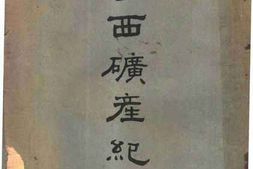 西礦産紀